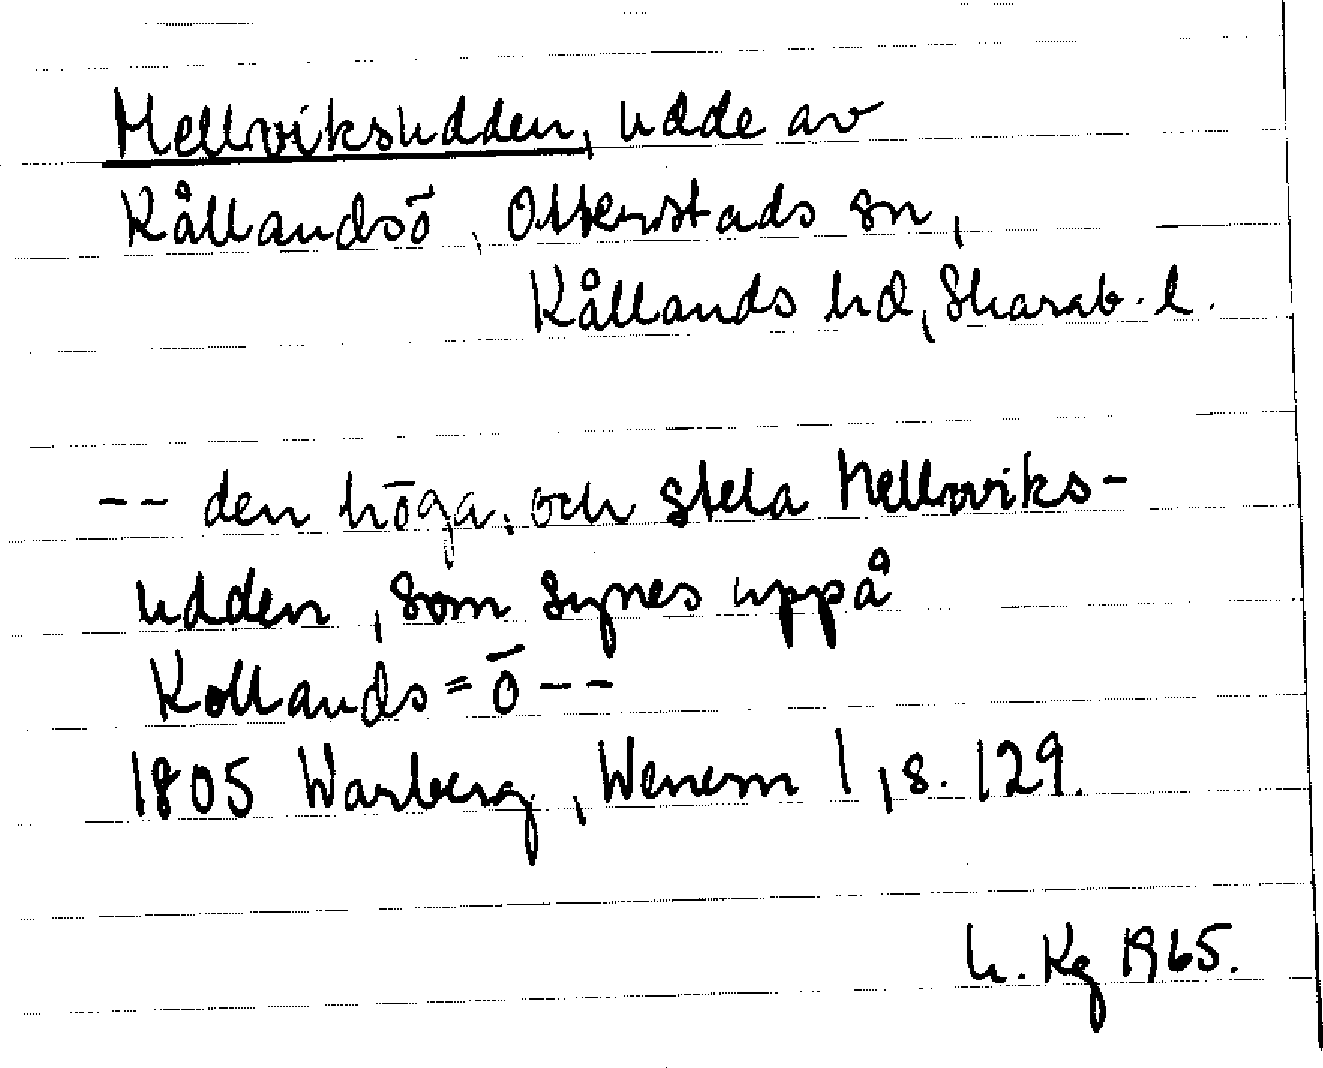 Hellviksudden, udde av
Kållandsö, Otterstads sn,
Kållands hd, Skarab. l.
-- den höga och stela Hellwviks-
udden, som synes uppå
Kollands=ö --
1805 Warberg, Wenern 1, s. 129.
Kg 1965.